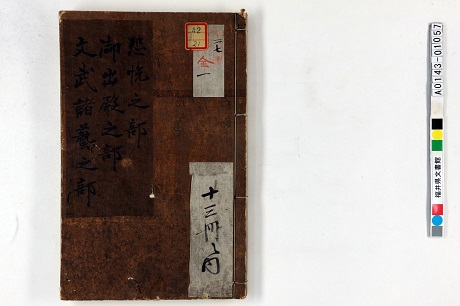 恐悦之部
御出殿之部
文武諸藝之部
十三冊ノ内
金
一
A0143-01057
福井県文書館